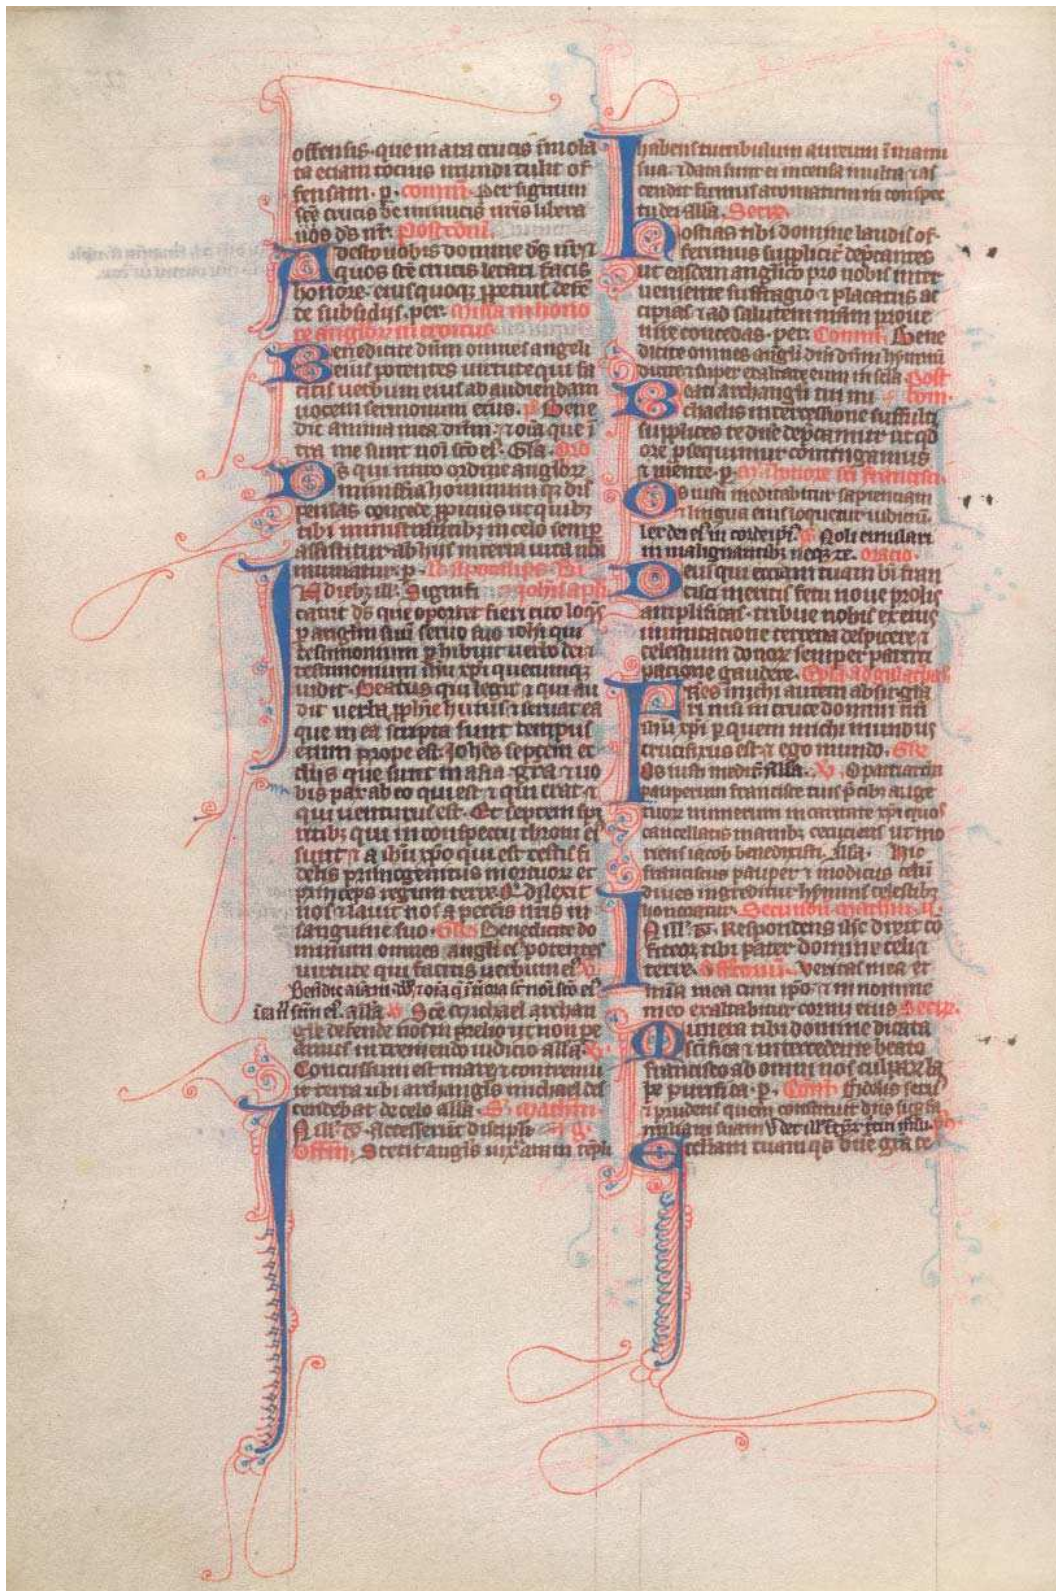 offensis. que in ara crucis īmola
ta eciam tocius mundi tulit of
fensam. p. cōmū. Per signum
scē crucis de inimicis nr̄is libera
nos ds nr̄. Postcōm̄.
Adesto nobis domine ds̄ nr̄ ⁊
quos scē crucis letari facis
honore. eius quoqꝫ ꝑpetuis defē
de subsidijs. per. Missa in hono
re anglorꝫ introitus
Benedicite dn̄m omnes angeli
eius potentes uirtute qui fa
citis uerbum eius ad audiendam
uocem sermonum eius. p̄ Bene
dic anima mea dn̄m. ⁊ oīa que ī
tra me sunt noī scō eꝰ. Gl̄a. Oro
Ds qui miro ordine anglorꝫ
ministīa hominum qꝫ dis
pensas concede ꝓpicius ut quibꝫ
tibi ministrātibꝫ in celo semꝑ
assistitur ab hijs in terra uita nr̄a
muniatur. p. L̄. apocalips. bī
In diebꝫ ill. Signifi iohīs apl̄i
cauit ds̄ que oportet fieri cito loqꝰs
ꝑ angl̄m suū seruo suo iohī qui
testimonium ꝑhibuit uerbo dei ⁊
testimonium ihū xp̄i quecumqꝫ
uidit. Beatus qui legit ⁊ qui au
dit uerba ꝓphīe huius ⁊ seruat ea
que in ea scripta sunt tempus
enim prope est. Johēs septem ec
cliis que sunt in asia. gr̄a ⁊ uo
bis pax ab eo qui est ⁊ qui erat ⁊
qui uenturus est. Et septem spi
ritibꝫ qui in conspectu throni eꝰ
sunt ⁊ a ihū xp̄o qui est testis fi
delis primogenitus mortuorꝫ et
princeps regum terre. Q̄ dilexit
nos ⁊ lauit nos a pecc̄is nr̄is in
sanguine suo. Gr̄le Benedicite do
minum omnes angl̄i eꝰ potentes
uirtute qui facitis uerbum eꝰ. v̄
Benedic aīam
scm̄ eꝰ. all̄a. v̄ Scē Michael archan
gle defende nos in prelio ut non pe
eamus in tremendo iudicio all̄a. v̄
Concussum est mare ⁊ contremu
it terra ubi archangl̄s michael des
cendebat de celo all̄a. S. Math̄m
In ill. t̄. Accesserūt discipl̄i
Offm̄. Stetit angl̄s iux aram tēpli
habens turibulum aureum ī manu
sua. ⁊ data sunt ei incensa multa ⁊ as
cendit fumus aromatum in conspec
tu dei. all̄a. Secre.
Hostias tibi domine laudis of
ferimus suppliciꝰ dep̄cantes
ut easdem angl̄ico pro nobis inter
ueniente suffragio ⁊ placatus ac
cipias ⁊ ad salutem nr̄am proue
nire concedas. per. Comm̄. Bene
dicite omnes angl̄i dn̄i dn̄m hymnū
dicite ⁊ super exaltate eum in scl̄a Post
Beati archangl̄i tui mi com̄.
chaelis intercessione suffulti
supplices te dn̄e dep̄camur ut qd̄
ore ꝓsequimur contingamus
⁊ mente. p. In honore scī francisci.
Os iusti meditabitur sapienciam
⁊ lingua eius loquetur iudiciū.
lex dei eꝰ in corde ipīꝰ. p̄ Noli emulari
in malignantibꝫ neqꝫ ⁊c. oracio.
Deus qui ecc̄iam tuam bī fran
cisci meritis fetu noue prolis
amplificas. tribue nobis ex eius
immitacione terrena despicere ⁊
celestium donorꝫ semper partici
pacione gaudere. Epl̄a ad galathas
Fr̄es michi autem absit gl̄a
ri nisi in cruce domini nr̄i
ihū xp̄i ꝑ quem michi mundus
crucifixus est ⁊ ego mundo. Gr̄le
Os iusti medit̄. All̄a. v̄. O patriarcha
pauperum francisce tuis p̄cibꝫ auge
tuorꝫ numerum in caritate xp̄i quos
cancellatis manibꝫ cecuciens ut mo
riens iacob benedixisti. all̄a. Hic
franciscus pauper ⁊ modicus celū
diues ingreditur hymnis celestibꝫ
honoratur. Secundū Math̄m
In ill. t̄. Respondens ihc̄ dixit co
fiteor tibi pater domine celi ⁊
terre. Offertoriū. Veritas mea et
mīa mea cum ip̄o ⁊ in nomine
meo exaltabitur cornu eius Secre.
Munera tibi domine dicata
sc̄ifica ⁊ intercedente beato
francisco ab omni nos culparꝫ la
be purifica. p. Com̄. Fidelis seruꝰ
⁊ prudens quem constituit dn̄s suꝑ fa
miliam suam
Eccl̄iam tuam qs̄ dn̄e gr̄a ce